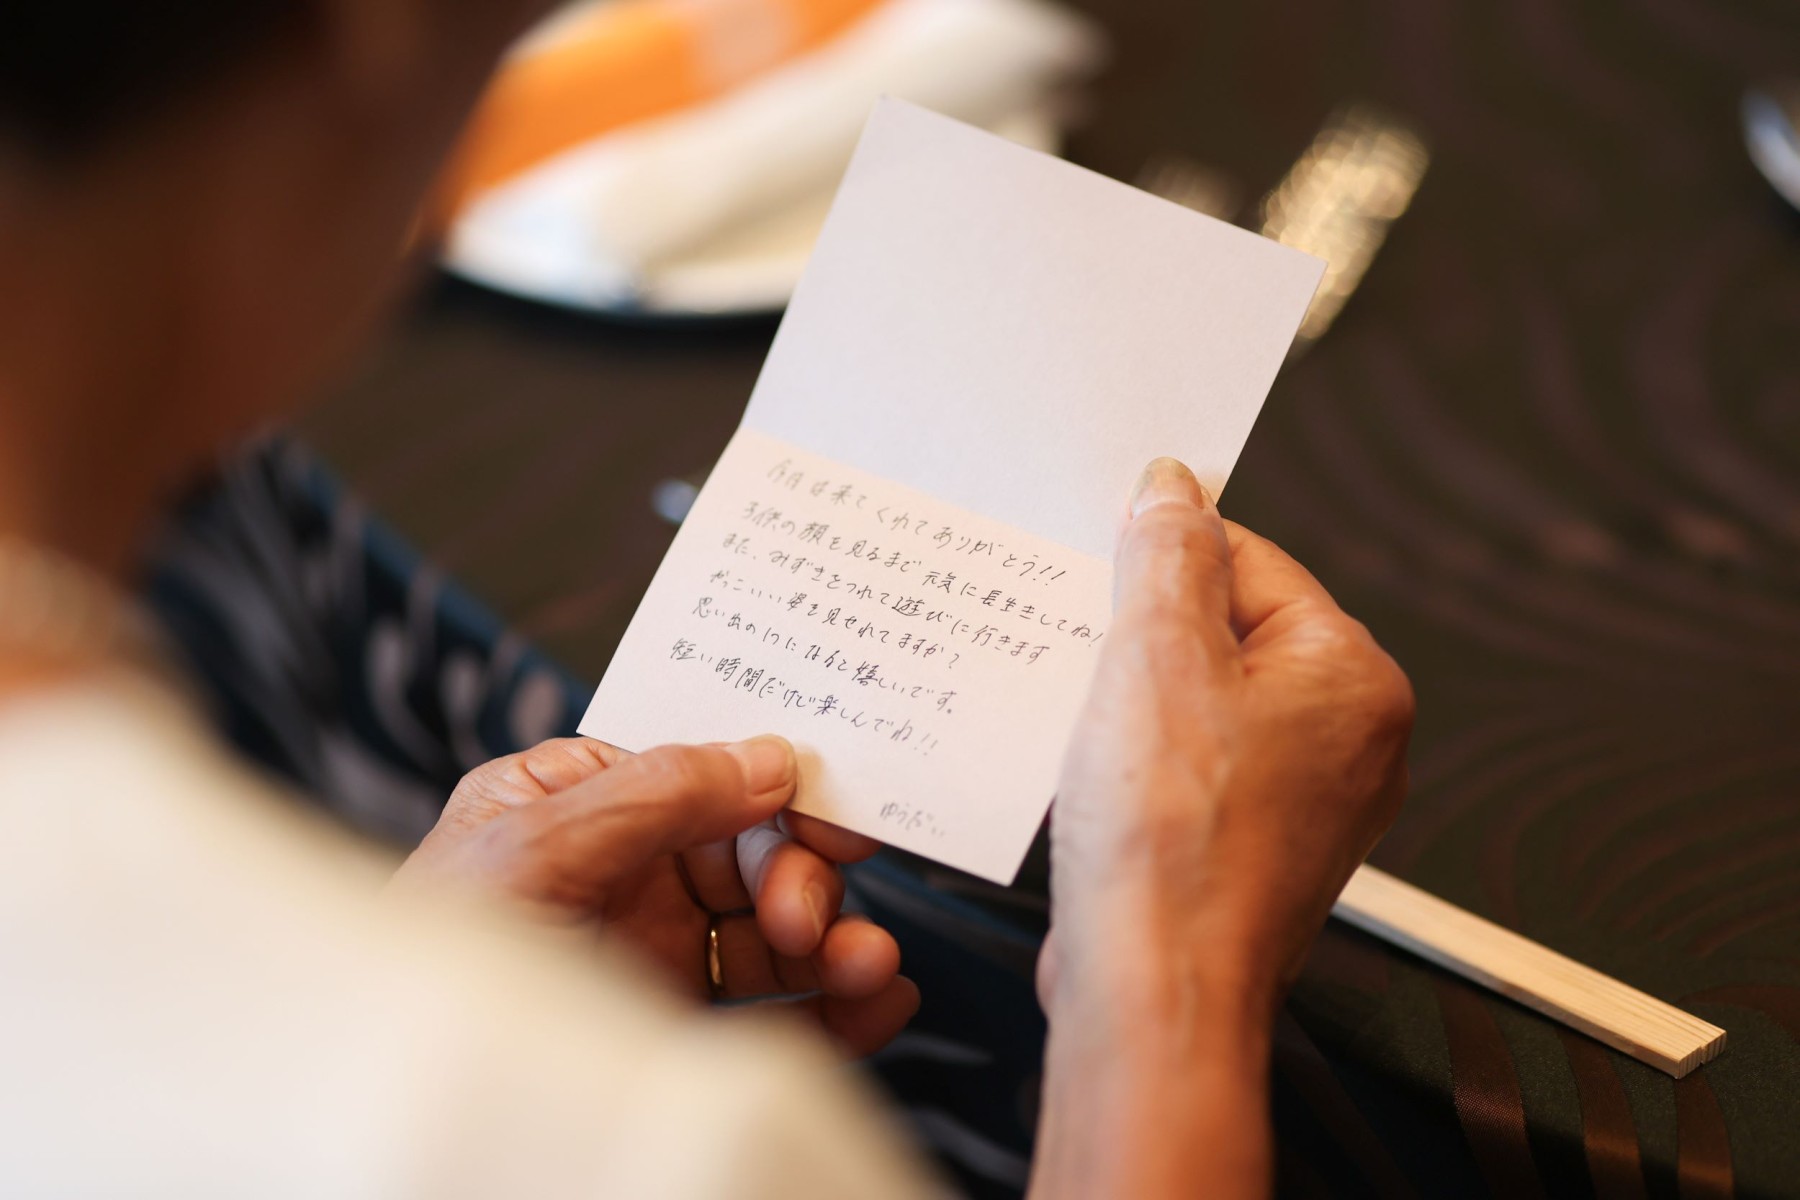 今日は来てくれてありがとう!!
子供の顔を見るまで元気に長生きしてね!
また、みずきをつれて遊びに行きます
かっこいい姿を見せれてますか?
思い出の1つになると嬉しいです。
短い時間だけど楽しんでね!!
ゆうだい